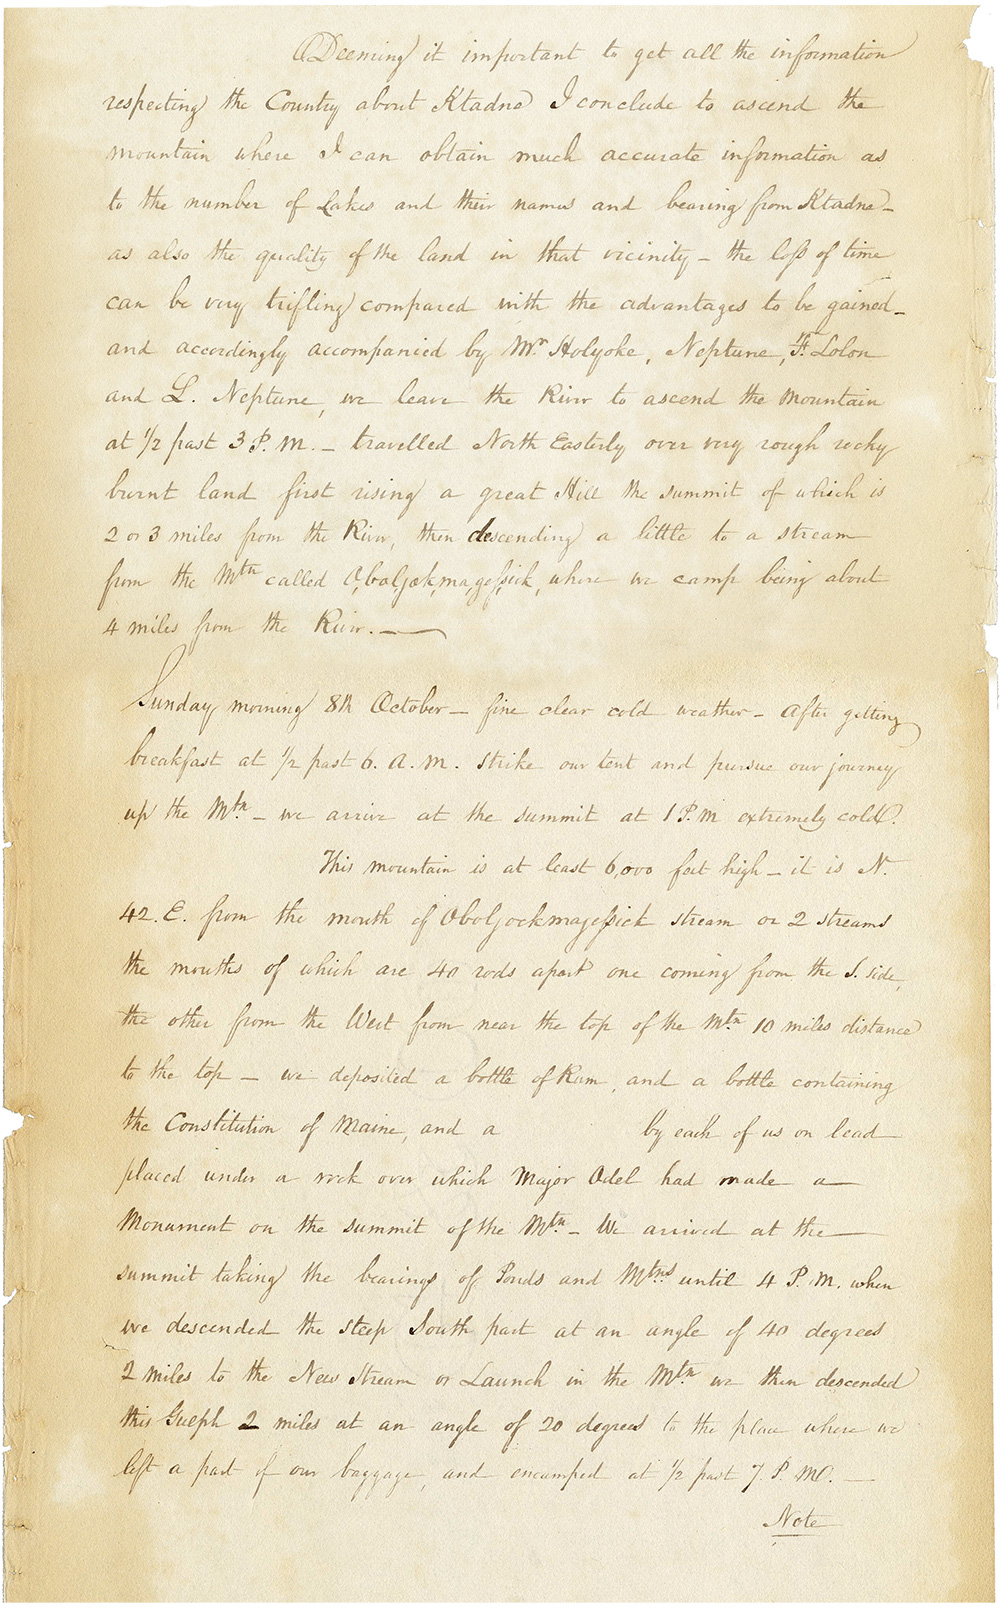 Deeming it important to get all the information
respecting the Country about Ktadne I conclude to ascend the
mountain where I can obtain much accurate information as
to the number of Lakes and their names and bearing from Ktadne –
as also the quality of the land in that vicinity – the loſs of time
can be very trifling compared with the advantages to be gained –
and accordingly accompanied by Mr. Holyoke, Neptune, Ft. Lolon
and L. Neptune, we leave the River to ascend the Mountain
at 1/2 past 3 P. M. – travelled North Easterly over very rough rocky
burnt land first rising a great Hill the summit of which is
2 or 3 miles from the River, then descending a little to a stream
from the Mtn called O,bal,jok,ma,geſsick, where we camp being about
4 miles from the River. —
Sunday morning 8th October – fine clear cold weather – After getting
breakfast at 1/2 past 6. A. M. strike our tent and pursue our journey
up the Mtn. – we arrive at the summit at 1 P. M extremely cold.
This mountain is at least 6,000 feet high – it is N.
42. E. from the mouth of Oboljockmageſsick stream or 2 streams
the mouths of which are 40 rods apart one coming from the S. side,
the other from the West from near the top of the Mtn 10 miles distance
to the top – we deposited a bottle of Rum, and a bottle containing
the Constitution of Maine, and a by each of us on lead
placed under a rock over which Major Odel had made a
Monument on the summit of the Mtn. – We arrived at the
summit taking the bearings of Ponds and Mtns until 4 P. M. when
we descended the steep South part at an angle of 40 degrees
2 miles to the New Stream or Launch in the Mtn we then descended
this Gulph 2 miles at an angle of 20 degrees to the place where we
left a part of our baggage, and encamped at 1/2 past 7. P. M. —
Note